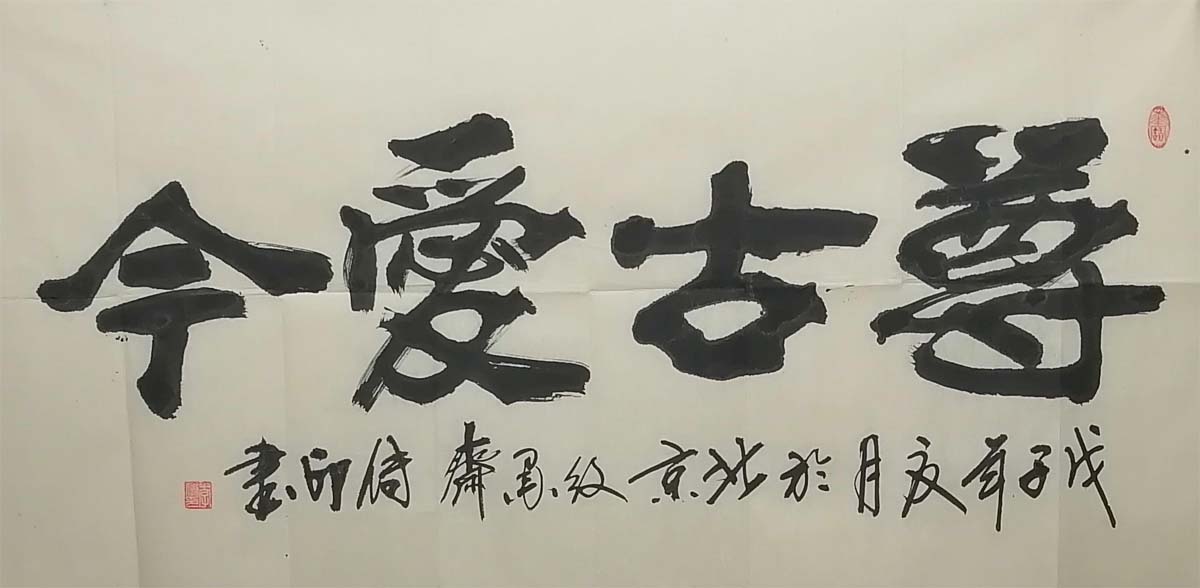 尊古愛今
戊子年夏月於北京墨齋印書